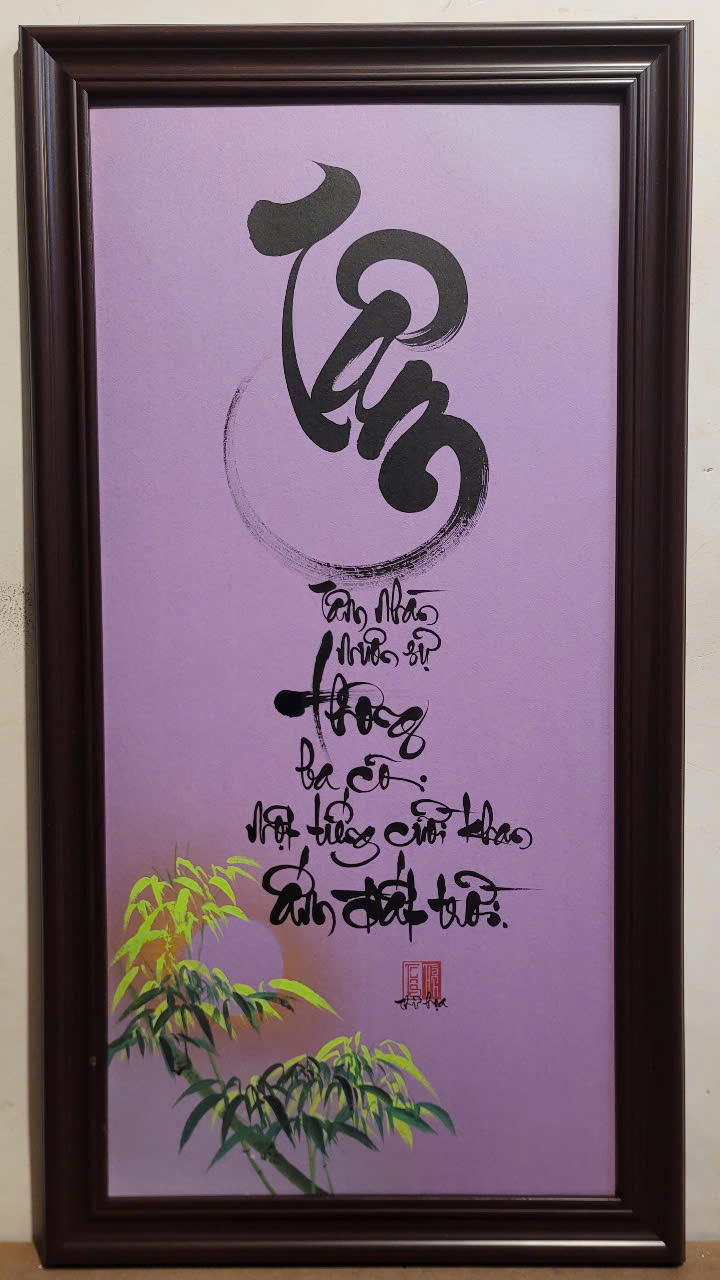 Tâm
Tâm nhàn
muôn sự
thong
ba cõi
Một tiếng cười khan
ấm đất trời.